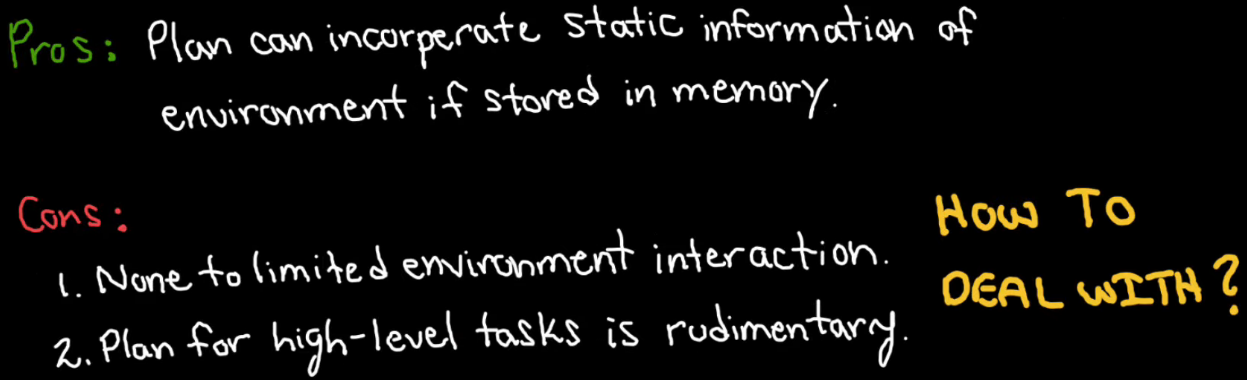 Pros: Plan can incorperate static information of
environment if stored in memory.
Cons:
1. None to limited environment interaction.
2. Plan for high-level tasks is rudimentary.
HOW TO
DEAL WITH?